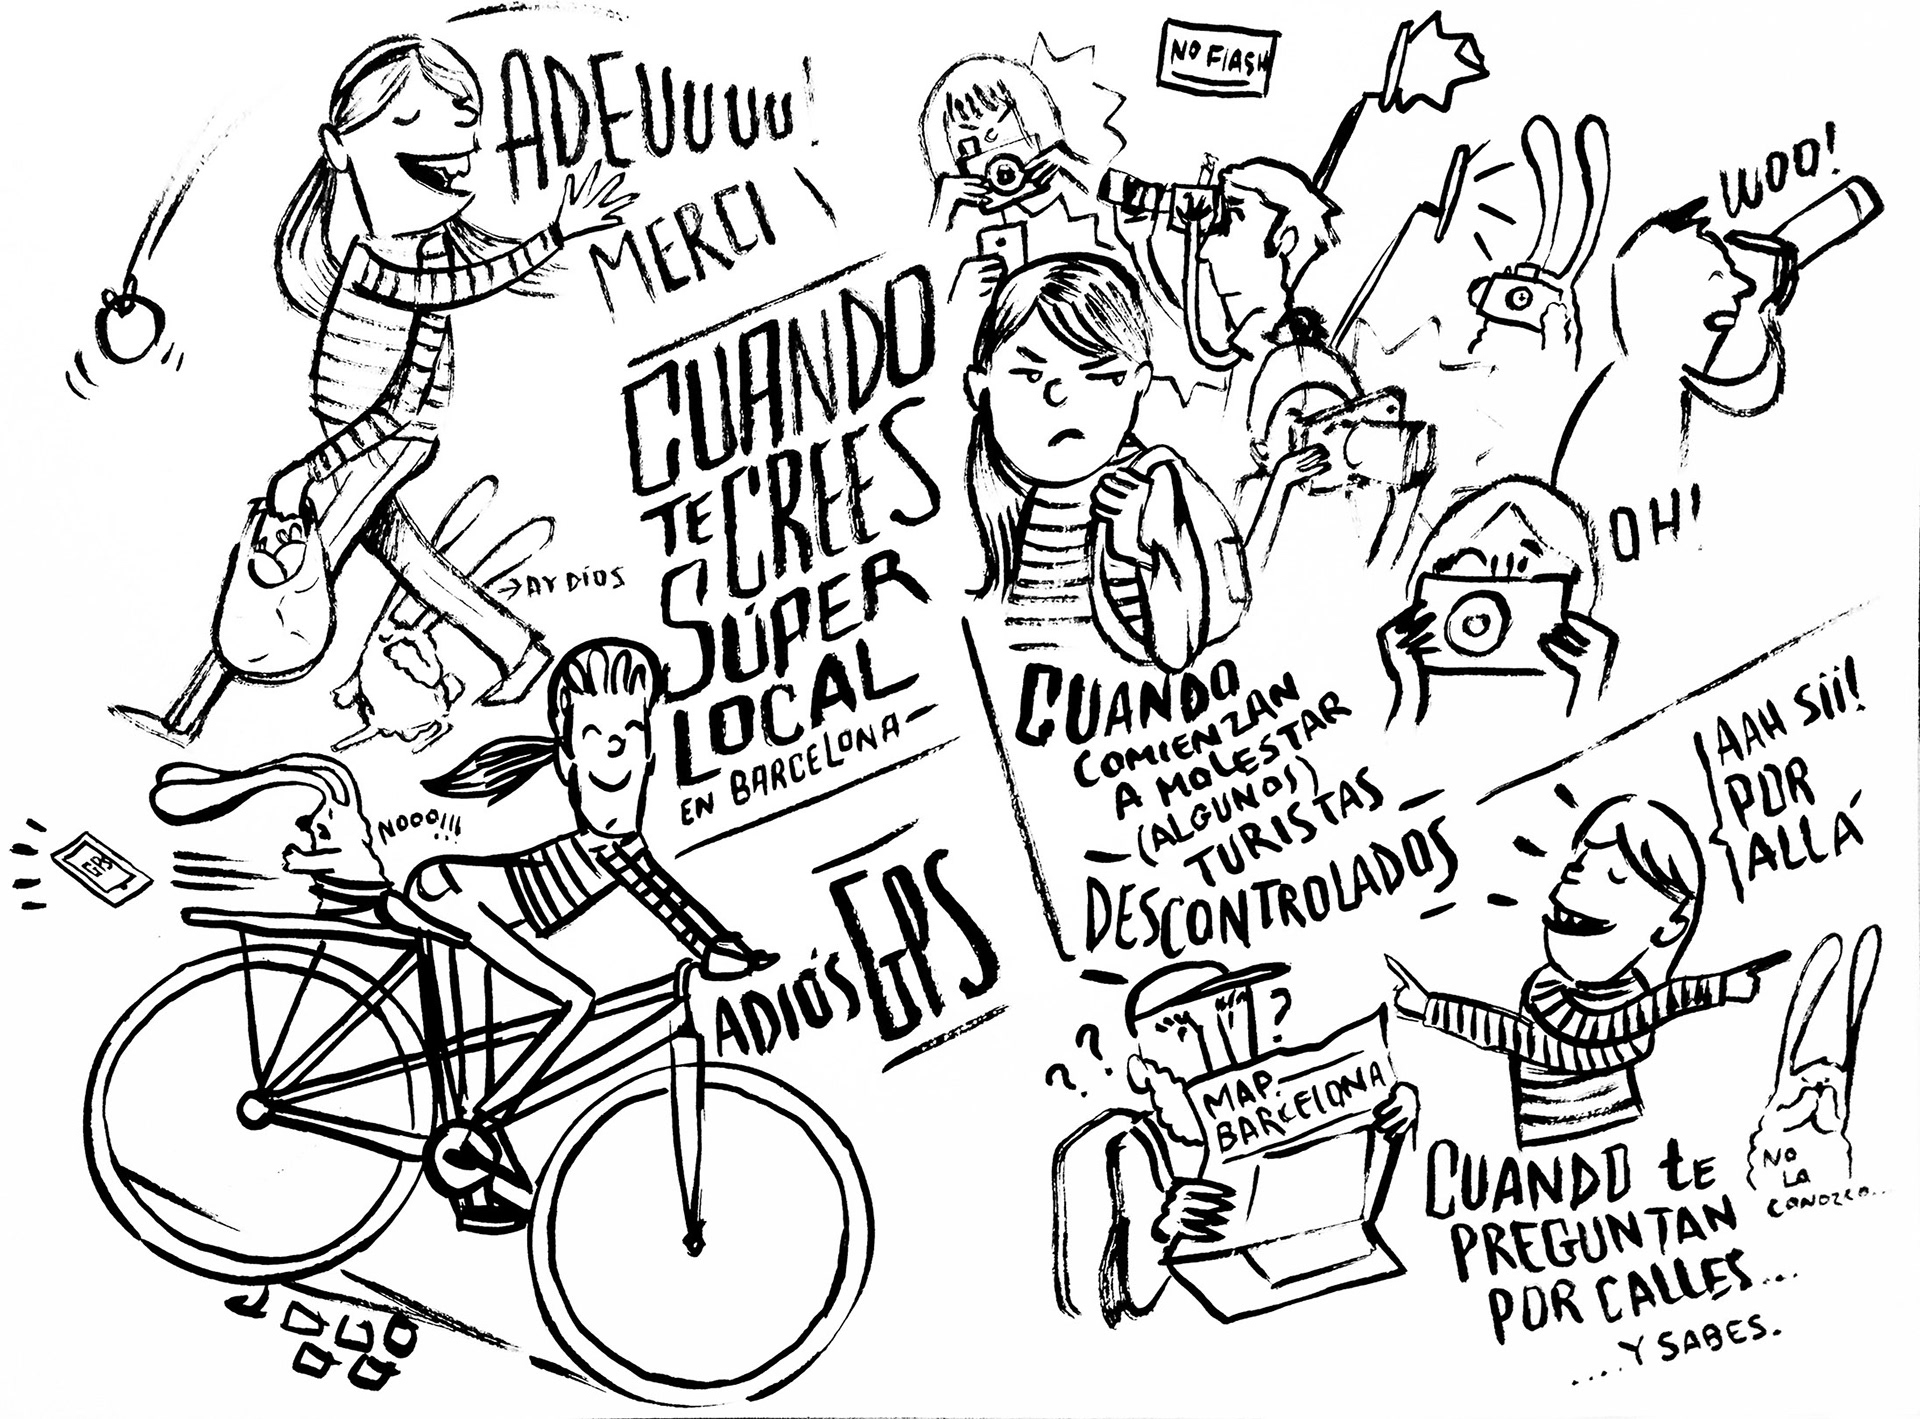 ADEUUUU!
MERCI
CUANDO
TE CREES
SÚPER
LOCAL
EN BARCELONA
AY DÍOS
NO FlASH
WOO!
OH!
CUANDO
COMIENZAN
A MOLESTAR
(ALGUNOS)
TURISTAS
DESCONTROLADOS
GPS
NOOO!!!
ADIÓS GPS
AAH SÍÍ!
POR
ALLÁ
? ? ?
MAP.
BARCELONA
NO
LA
CONOZCO...
CUANDO tE
PREGUNTAN
POR CALLES....
....Y SABES.